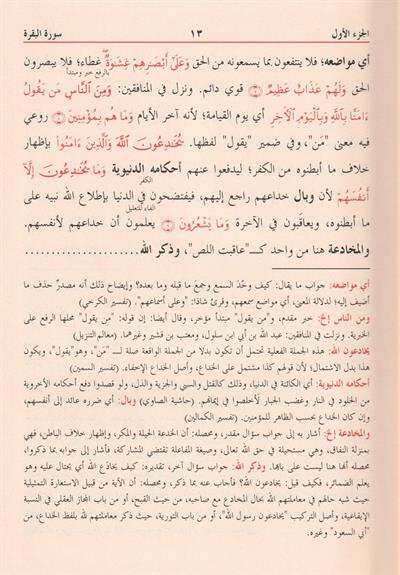 الجزء الأول ١٣ سورة البقرة
أي مواضعه؛ فلا ينتفعون بما يسمعونه من الحق وَعَلَىٰٓ أَبْصَٰرِهِمْ غِشَٰوَةٌ غطاء؛ فلا يبصرون
بالرفع خبر ومبتدأ
الحق وَلَهُمْ عَذَابٌ عَظِيمٌ ٧ قوي دائم. ونزل في المنافقين: وَمِنَ ٱلنَّاسِ مَن يَقُولُ
ءَامَنَّا بِٱللَّهِ وَبِٱلْيَوْمِ ٱلْأَخِرِ أي يوم القيامة؛ لأنه آخر الأيام وَمَا هُم بِمُؤْمِنِينَ ٨ روعي
فيه معنى "مَن"، وفي ضمير "يقول" لفظها. يُخَٰدِعُونَ ٱللَّهَ وَٱلَّذِينَ ءَامَنُوا۟ بإظهار
خلاف ما أبطنوه من الكفر؛ ليدفعوا عنهم أحكامه الدنيوية وَمَا يَخْدَعُونَ إِلَّآ
الكفر
أَنفُسَهُمْ لأن وبال خداعهم راجع إليهم، فيفتضحون في الدنيا بإطلاع الله نبيه على
الفاء للتعليل
ما أبطنوه، ويعاقَبون في الآخرة وَمَا يَشْعُرُونَ ٩ يعلمون أن خداعهم لأنفسهم.
والمخادعة هنا من واحد كـ"عاقبت اللص"، وذكر الله....................
أي مواضعه: جواب ما يقال: كيف وحّد السمع وجمع ما قبله وما بعده؟ وإيضاح ذلك أنه مصدرٌ حذف ما
أضيف إليه؛ لدلالة المعنى، أي مواضع سمعهم، وقرئ شاذا: "وعلى أسماعهم". (تفسير الكرخي)
ومن الناس إلخ: خبر مقدم، و"من يقول" مبتدأ مؤخر، وقال أيضا: إن قوله: "من يقول" محلها الرفع على
الخبرية. ونزلت في المنافقين: عبد الله بن أبي ابن سلول، ومعتب بن قشير وغيرهما. (معالم التنزيل)
يخادعون الله: هذه الجملة الفعلية تحتمل أن تكون بدلا من الجملة الواقعة صلة لـ "مَن"، وهو"يقول"، ويكون
هذا بدل الاشتمال؛ لأن قولهم كذا مشتمل على الخداع، وأصل الخداع الإخفاء. (تفسير السمين)
أحكامه الدنيوية: أي الكائنة في الدنيا، وذلك كالقتل والسبي والجزية والذل، ولو قصدوا دفع أحكامه الأخروية
من الخلود في النار وغضب الجبار لأخلصوا في إيمانهم. (حاشية الصاوي) وبال: أي ضرره عائد إلى أنفسهم،
وإن كان الخداع بحسب الظاهر للمؤمنين. (تفسير الكمالين)
والمخادعة إلخ: أشار به إلى جواب سؤال مقدر، ومحصله: أن الخدعة الحيلة والمكر، وإظهار خلاف الباطن، فهي
بمنزلة النفاق، وهي مستحيلة في حق الله تعالى، وصيغة المفاعلة تقتضي المشاركة، فأشار إلى جوابه بما ذكروا،
محصله أنها هنا ليست على بابها. وذكر الله: جواب سؤال آخر، تقديره: كيف يخادَع الله أي يحتال عليه وهو
يعلم الضمائر، فكيف قيل: يخادعون الله؟ فأجاب عنه بما ذكر، ومحصله: أن الآية من قبيل الاستعارة التمثيلية
حيث شبه حالهم في معاملتهم الله بحال المخادع مع صاحبه، من حيث القبح، أو من باب المجاز العقلي في النسبة
الإيقاعية، وأصل التركيب "يخادعون رسول الله"، أو من باب التورية، حيث ذكر معاملتهم لله بلفظ الخداع، من
"أبي السعود" وغيره.